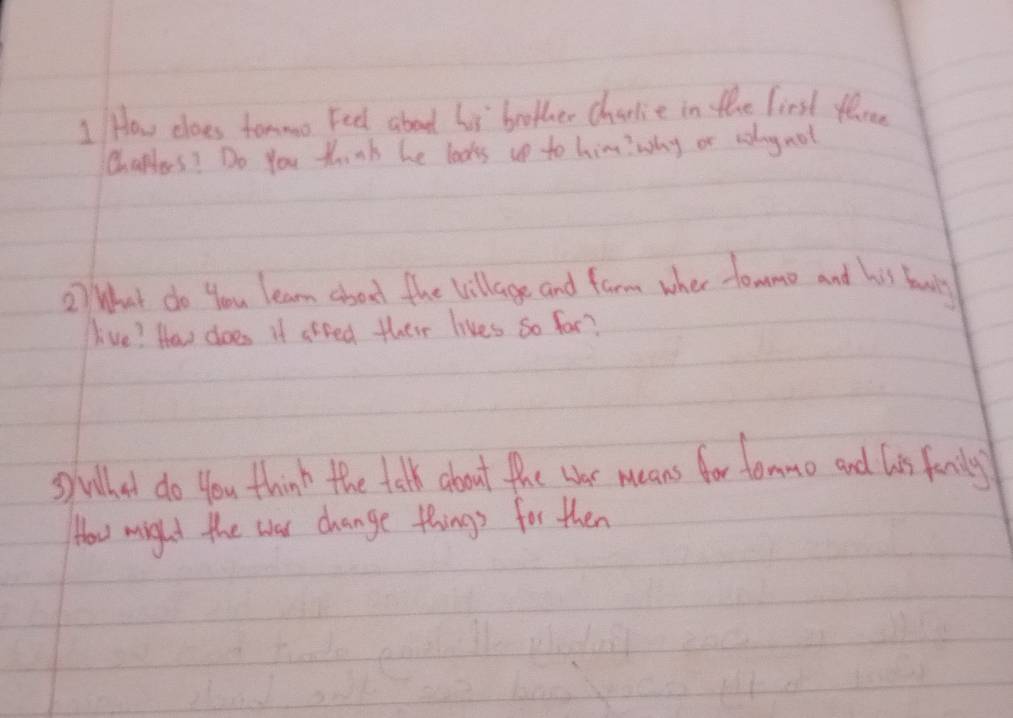 1 How does tommo Feel about his brother Charlie in the first three
Chapters? Do you think he looks up to him? why or why not
2) What do you learn about the village and farm wher tommo and his family
live? How does it affed their lives so far?
3) What do you think the talk about the war means for tommo and his family?
How might the war change things for then